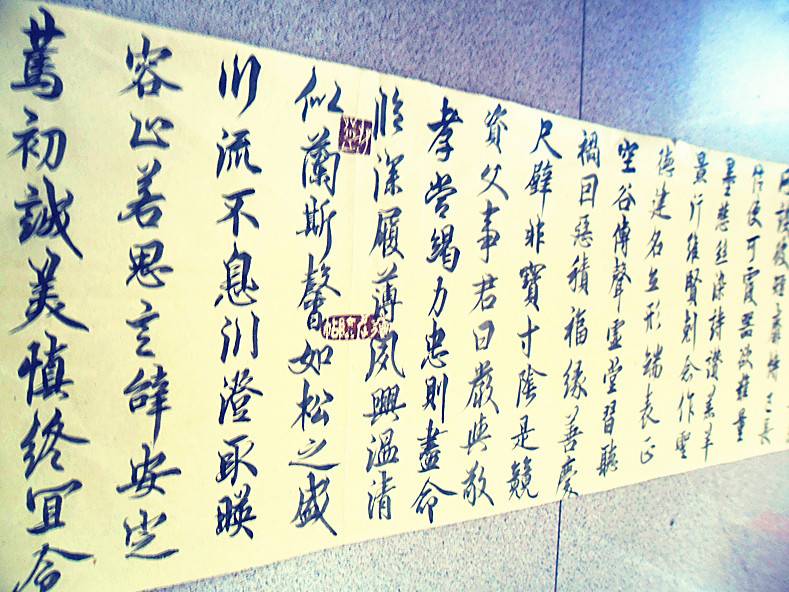 罔談彼短靡恃己長
信使可覆器欲難量
墨悲絲染詩讚羔羊
景行維賢剋念作聖
德建名立形端表正
空谷傳聲虛堂習聽
禍因惡積福緣善慶
尺璧非寶寸陰是競
資父事君曰嚴與敬
孝當竭力忠則盡命
臨深履薄夙興溫清
似蘭斯馨如松之盛
川流不息淵澄取暎
容止若思言辭安定
篤初誠美慎終宜令